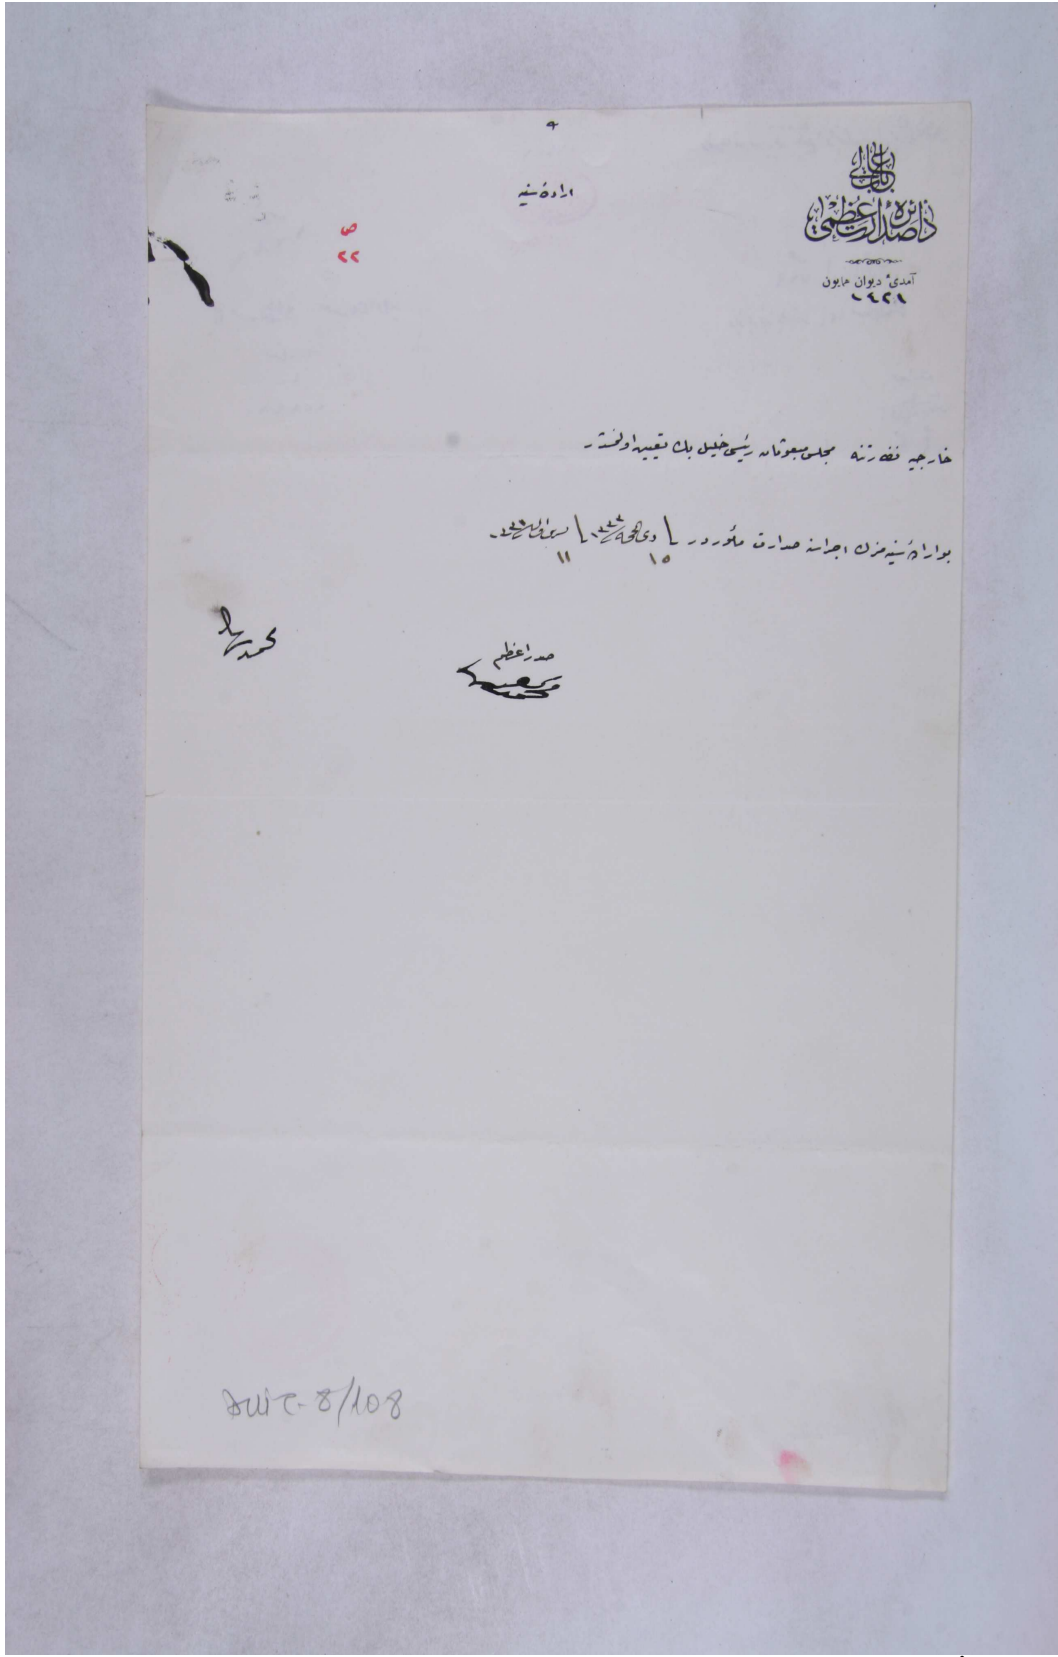 باب عالی
دائرهٔ صدارت عظمی
آمدیٔ دیوان همایون
١٤٢١
ارادهٔ سنیه
ص
٢٢
خارجیه نظارتنه مجلس مبعوثان رئیسی خلیل بك تعیین اولنمشدر
بو ارادهٔ سنیه مزك اجراسنه صدارت مأموردر
١٥ ذی الحجه ١٣٣٣ ١١ تشرین اول ١٣٣١
صدر اعظم
محمد سعید
محمد رشاد
AMİT-8/108